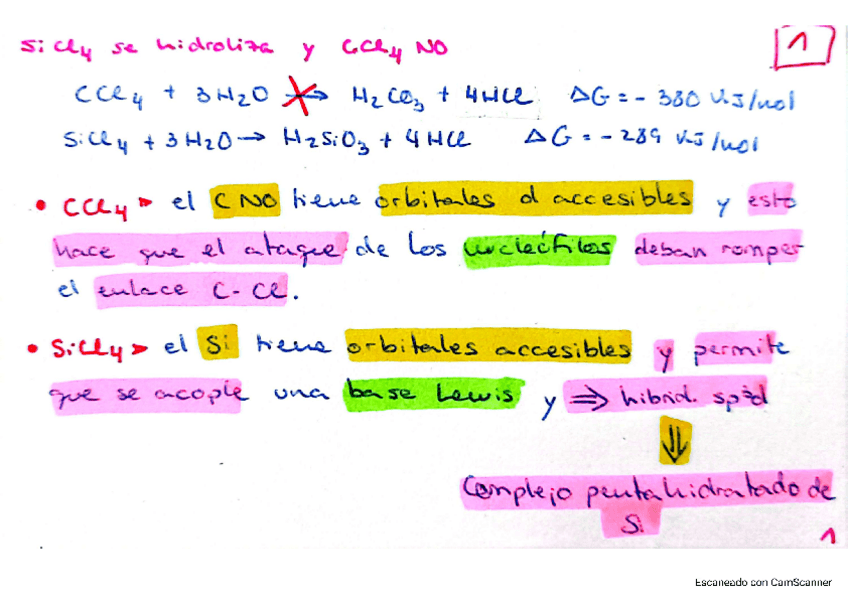 SiCl4 se hidroliza y CCl4 NO
1
CCl4 + 3H2O → H2CO3 + 4HCl ΔG = - 380 kJ/mol
SiCl4 + 3H2O → H2SiO3 + 4HCl ΔG = - 289 kJ/mol
• CCl4 ▸ el C NO tiene orbitales d accesibles y esto
hace que el ataque de los nucleófilos deban romper
el enlace C-Cl.
• SiCl4 ▸ el Si tiene orbitales accesibles y permite
que se acople una base Lewis y ⇒ hibrid. sp3d
⇓
Complejo pentahidratado de
Si
1
Escaneado con CamScanner